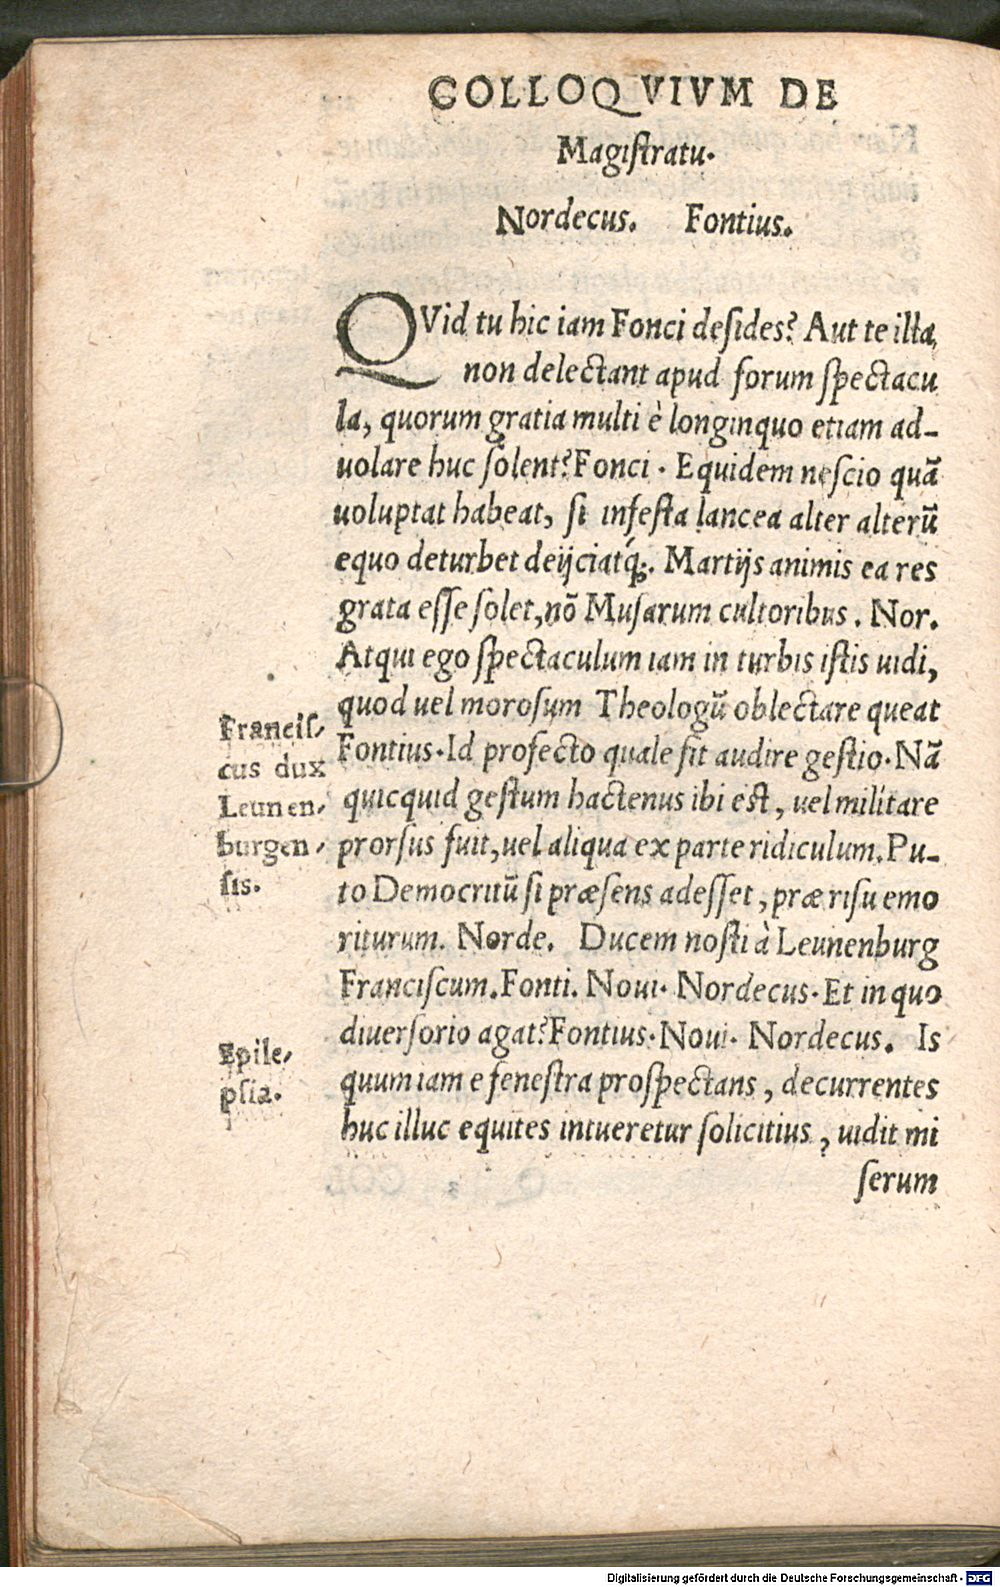 COLLOQVIVM DE
Magistratu.
Nordecus. Fontius.
QVid tu hic iam Fonci desides? Aut te illa
non delectant apud forum spectacu
la, quorum gratia multi è longinquo etiam ad-
uolare huc solent? Fonci. Equidem nescio quã
uoluptat habeat, si infesta lancea alter alterũ
equo deturbet deijciatq́;. Martijs animis ea res
grata esse solet, nõ Musarum cultoribus. Nor.
Atqui ego spectaculum iam in turbis istis uidi,
quod uel morosum Theologũ oblectare queat
Fontius. Id profecto quale sit audire gestio. Nã
quicquid gestum hactenus ibi est, uel militare
prorsus fuit, uel aliqua ex parte ridiculum. Pu-
to Democritũ si præsens adesset, præ risu emo
riturum. Norde. Ducem nosti à Leunenburg
Franciscum. Fonti. Noui. Nordecus. Et in quo
diuersorio agat? Fontius. Noui. Nordecus. Is
quum iam e fenestra prospectans, decurrentes
huc illuc equites intueretur solicitius, uidit mi
serum
Francis-
cus dux
Leunen-
burgen-
sis.
Epile-
psia.
Digitalisierung gefördert durch die Deutsche Forschungsgemeinschaft - DFG